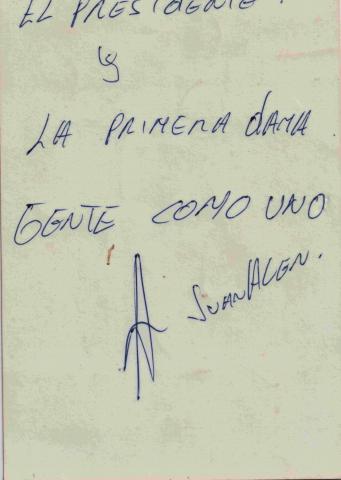 EL PRESIDENTE.
y
LA PRIMERA DAMA
GENTE COMO UNO
JUANALEN.